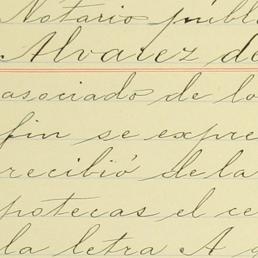 Notario públ
Alvarez de
asociado de lo
fin se expre
recibió de la
potecas el ce
la letra A q